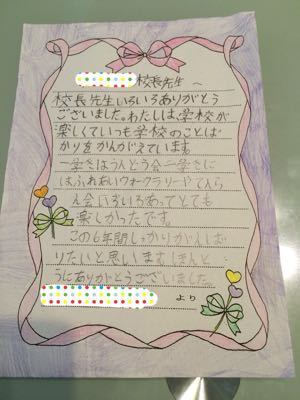 校長先生へ
校長先生いろいろありがとう
ございました。わたしは、学校が
楽しくていつも学校のことば
かりをかんがえています。
一学きはうんどう会二学きに
はふれあいウォークラリーやてんら
ん会いろいろあってとても
楽しかったです。
この6年間しっかりがんば
りたいと思います。ほんと
うにありがとうございました。
より